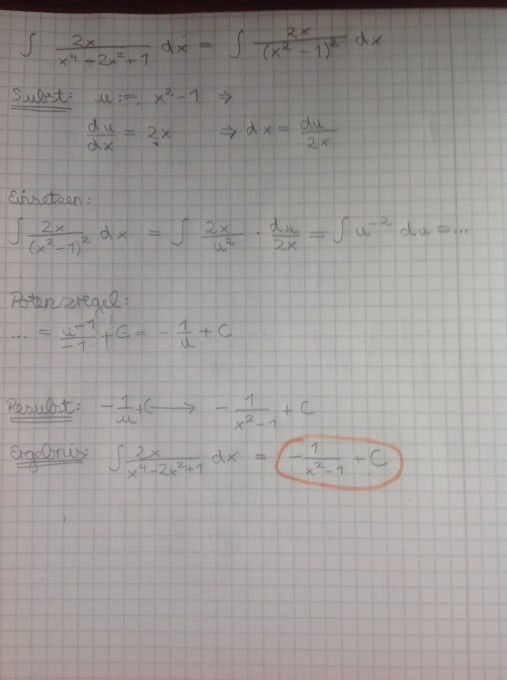 ∫ 2x/(x⁴-2x²+1) dx = ∫ 2x/(x²-1)² dx
Subst: u := x²-1 ⇒
du/dx = 2x ⇒ dx = du/2x
Einsetzen:
∫ 2x/(x²-1)² dx = ∫ 2x/u² · du/2x = ∫ u⁻² du = ...
Potenzregel:
... = u⁻¹/-1 + C = - 1/u + C
Resubst: - 1/u + C → - 1/(x²-1) + C
Ergebnis: ∫ 2x/(x⁴-2x²+1) dx = - 1/(x²-1) + C